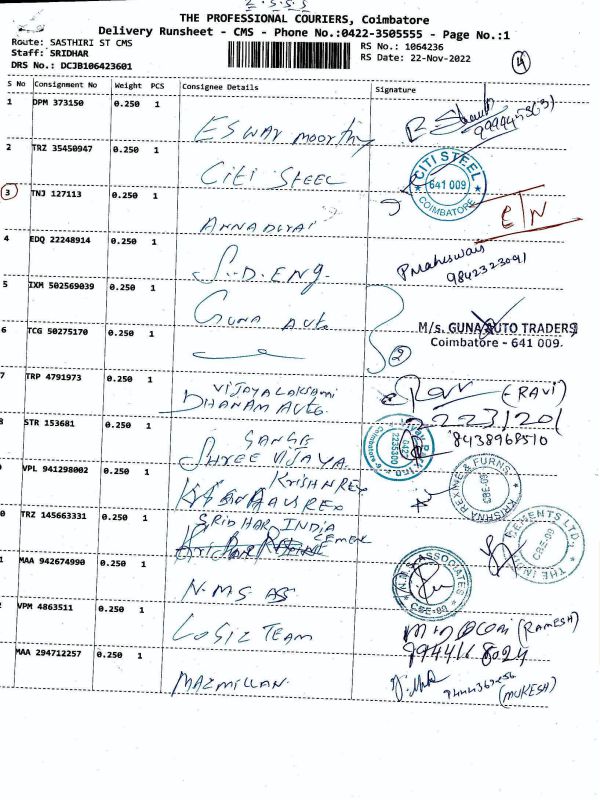 THE PROFESSIONAL COURIERS, Coimbatore
Delivery Runsheet - CMS - Phone No.:0422-3505555 - Page No.:1
Route: SASTHIRI ST CMS
Staff: SRIDHAR
DRS No.: DCJB106423601
RS No.: 1064236
RS Date: 22-Nov-2022
4
S No Consignment No Weight PCS Consignee Details Signature
1 DPM 373150 0.250 1
ESwar moorthy
2 TRZ 35450947 0.250 1
CITI STEEL
CITI STEEL
641 009
COIMBATORE
3 TNJ 127113 0.250 1
ANNADURAI
4 EDQ 22248914 0.250 1
S.D.ENG.
P.Maheswari
9842323091
5 IXM 502569039 0.250 1
GUNA AUTO
M/s. GUNA AUTO TRADERS
Coimbatore - 641 009.
6 TCG 50275170 0.250 1
2
7 TRP 4791973 0.250 1
VIJAYALAKSAMI
DHANAM AUTO
(RAVI)
2223201
8 STR 153681 0.250 1
GANGA
SHREE VIJAYA
8438968510
VPL 941298002 0.250 1
KRISHNREX
KRISHNA REXINE & FURNS
CBE-09
0 TRZ 145663331 0.250 1
SRIDHAR INDIA
CEMENTS LTD.
THE INDIA
CBE-09
1 MAA 942674990 0.250 1
N.M.S ASS
N.M.S ASSOCIATES
CBE-09
2 VPM 4863511 0.250 1
LOGIZ TEAM
(RAMESH)
MAA 294712257 0.250 1
MAZMILLAN
(MUKESH)